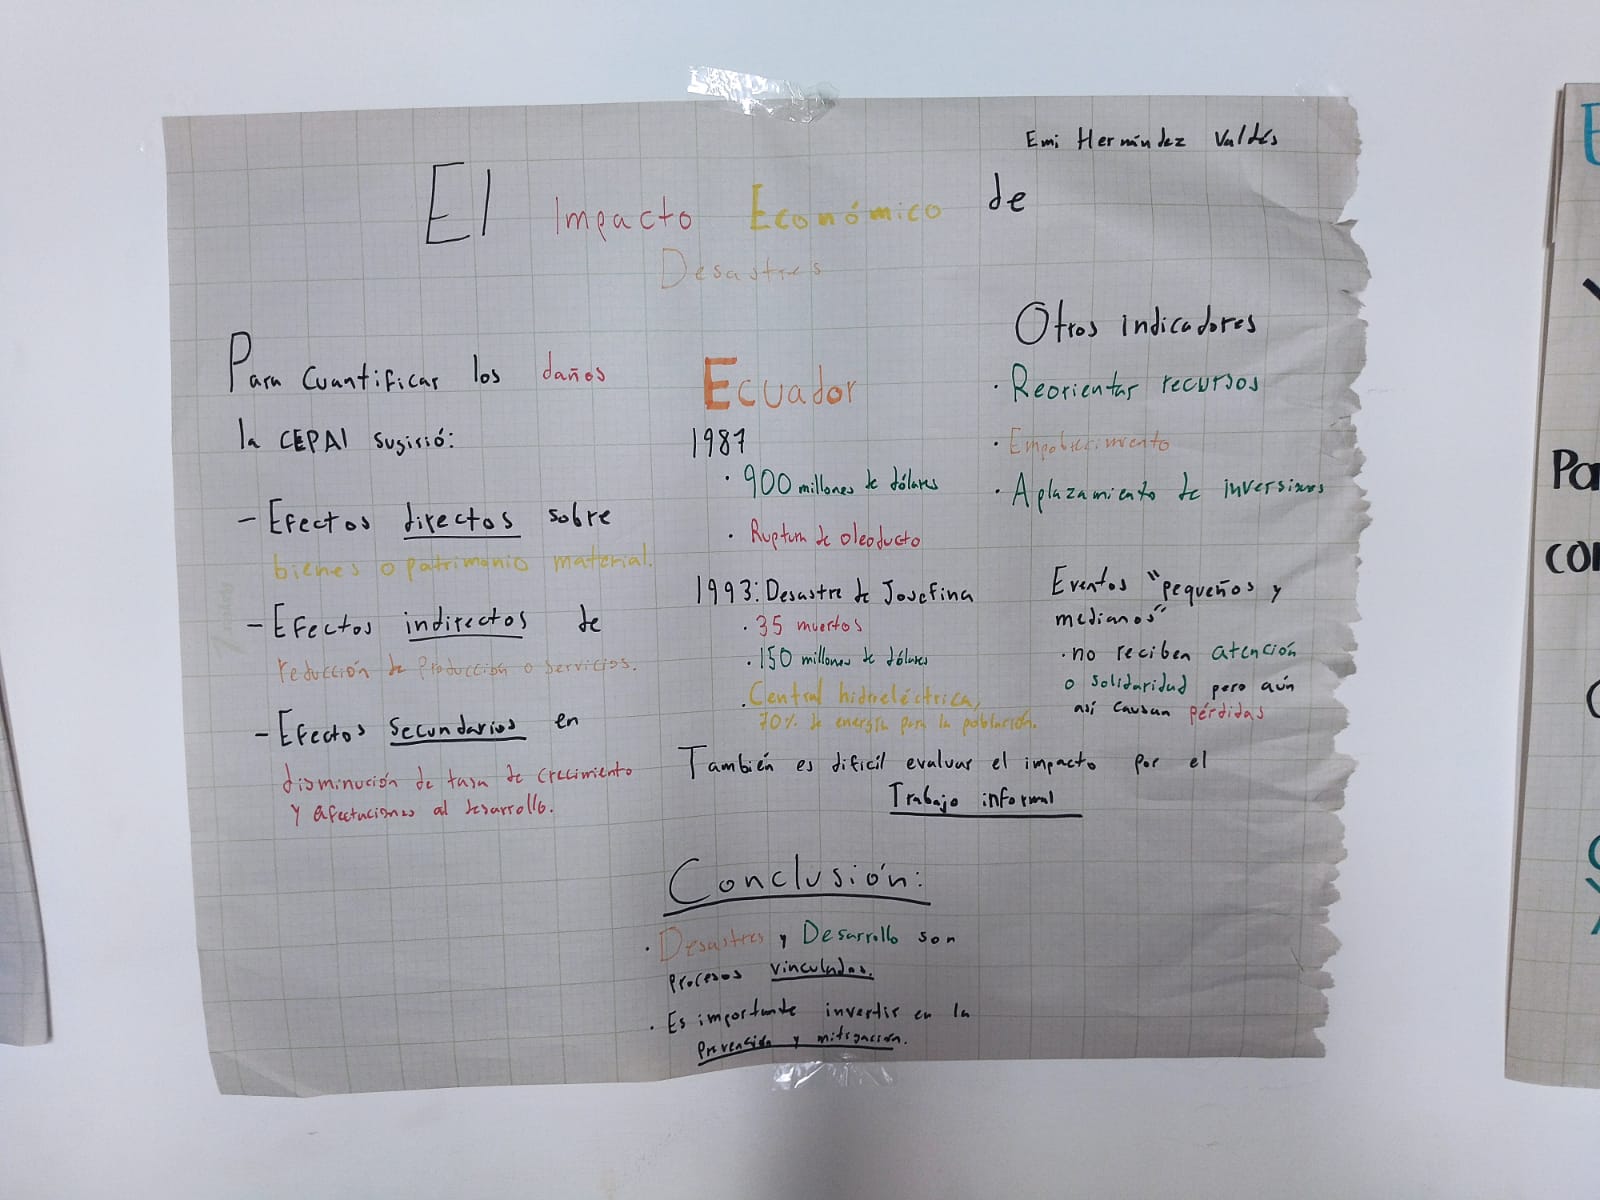 Emi Hernández Valdés
El Impacto Económico de
Desastres
Para cuantificar los daños
la CEPAL sugirió:
- Efectos directos sobre
bienes o patrimonio material.
- Efectos indirectos de
reducción de producción o servicios.
- Efectos secundarios en
disminución de tasa de crecimiento
y afectaciones al desarrollo.
Ecuador
1987
· 900 millones de dólares
· Ruptura de oleoducto
1993: Desastre de Josefina
· 35 muertos
· 150 millones de dólares
· Central hidroeléctrica,
70% de energía para la población.
Otros indicadores
· Reorientar recursos
· Empobrecimiento
· Aplazamiento de inversiones
Eventos "pequeños y
medianos"
· no reciben atención
o solidaridad pero aún
así causan pérdidas
También es dificíl evaluar el impacto por el
Trabajo informal
Conclusión:
· Desastres y Desarrollo son
procesos vinculados.
· Es importante invertir en la
prevención y mitigación.